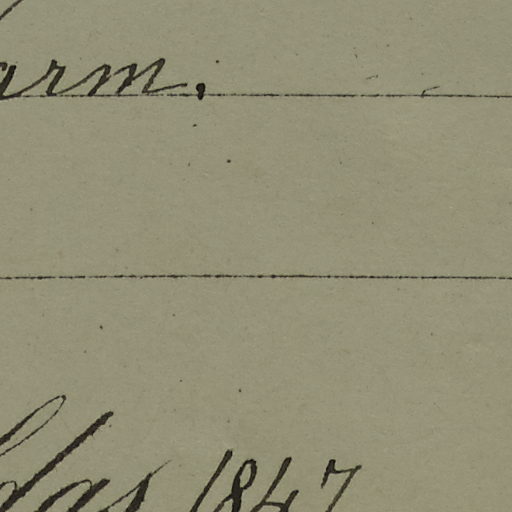 arm.
das 1847